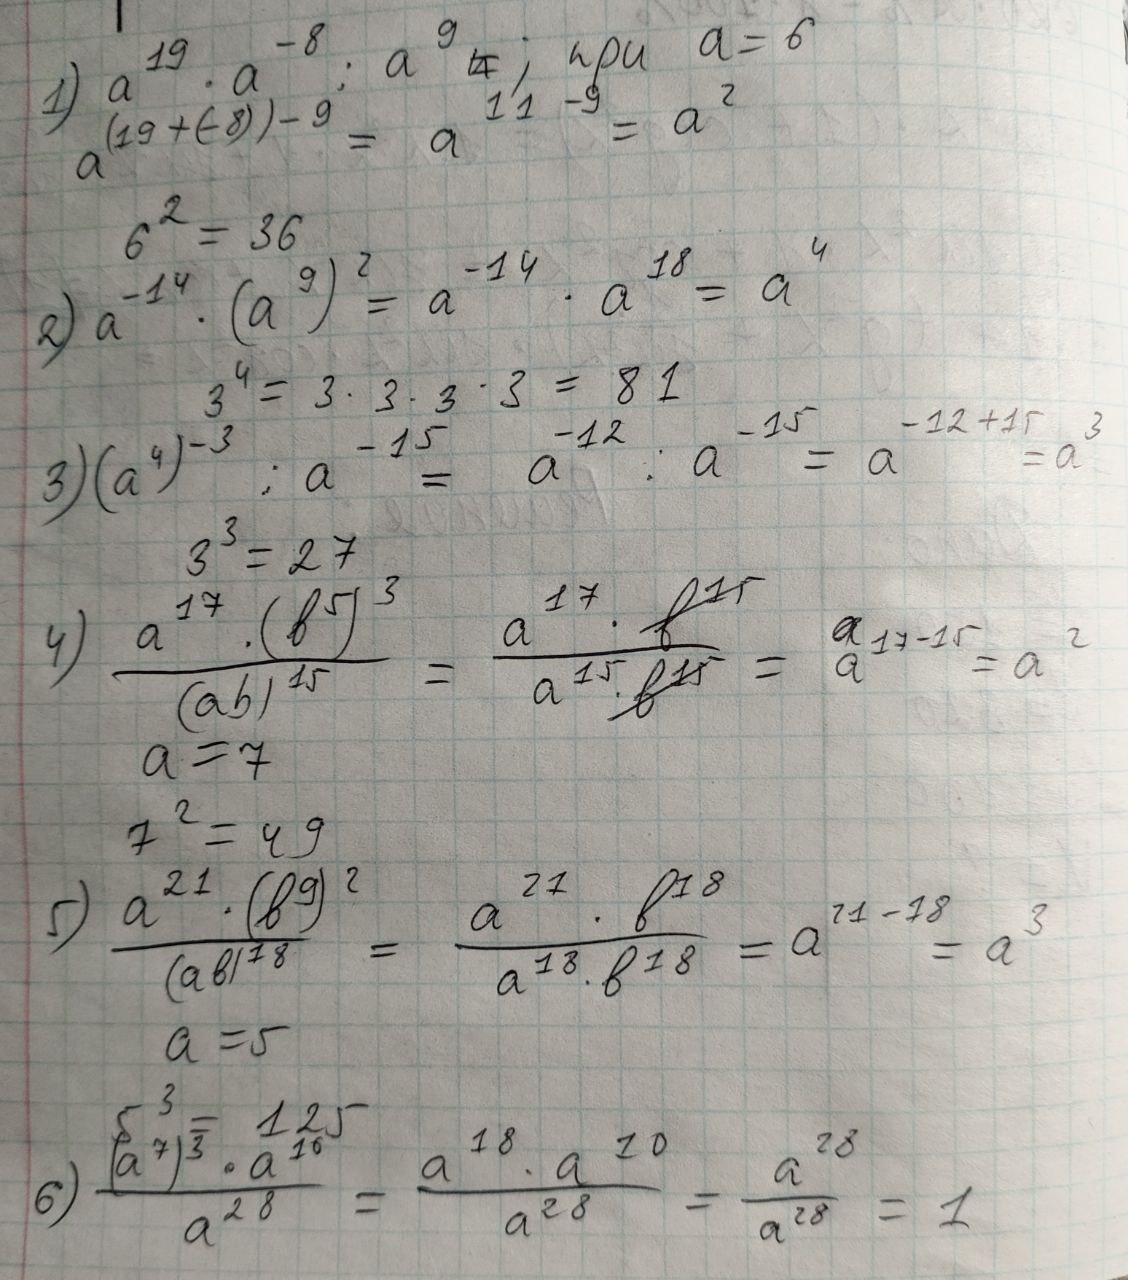 1) a^19 · a^-8 : a^9 ; при a = 6
a^(19+(-8))-9 = a^11-9 = a^2
6^2 = 36
2) a^-14 · (a^9)^2 = a^-14 · a^18 = a^4
3^4 = 3 · 3 · 3 · 3 = 81
3) (a^4)^-3 : a^-15 = a^-12 : a^-15 = a^-12+15 = a^3
3^3 = 27
4) a^17 · (b^5)^3 / (ab)^15 = a^17 · b^15 / a^15 · b^15 = a^17-15 = a^2
a = 7
7^2 = 49
5) a^21 · (b^9)^2 / (ab)^18 = a^21 · b^18 / a^18 · b^18 = a^21-18 = a^3
a = 5
5^3 = 125
6) (a^7)^3 · a^10 / a^28 = a^18 · a^10 / a^28 = a^28 / a^28 = 1